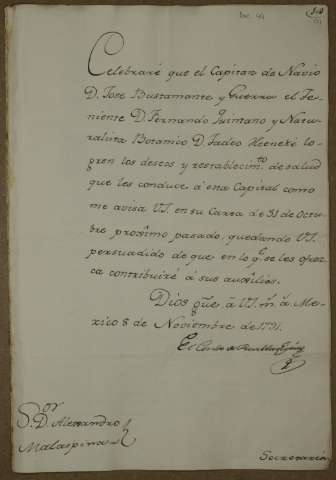 Celebraré que el Capitan de Navio
D. Jose Bustamante y Guerra el Te-
niente D. Fernando Quintano y Natu-
ralista Botanico D. Tadeo Heeneke lo-
gren los deseos y restablecim.to de salud
que les conduce á esta Capital como
me avisa V.S. en su Carta de 31 de Octu-
bre proximo pasado, quedando V.S.
persuadido de que en lo q.e se les ofrez-
ca contribuiré á sus auxilios.
Dios g.ue á V.S. m.s a.s Me-
xico 8 de Noviembre de 1791.
El Conde de Revilla Gigedo
S.or D. Alexandro
Malaspina
Secretaria